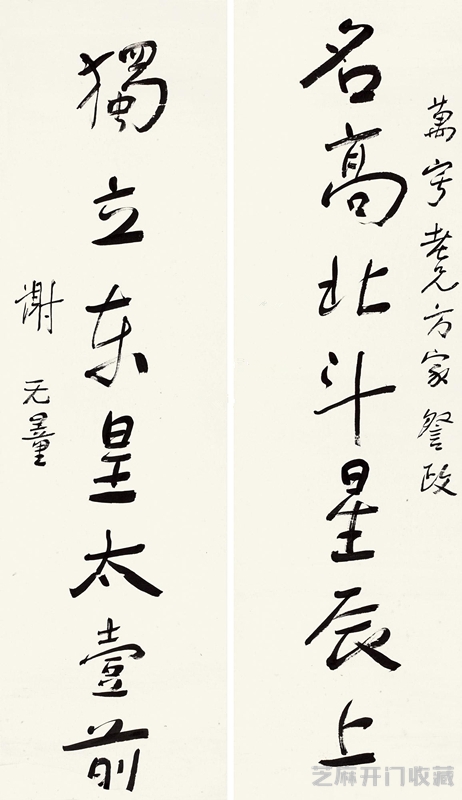 萬老兄方家詧政
名高北斗星辰上
獨立东皇太壹前
謝无量
芝麻开门收藏